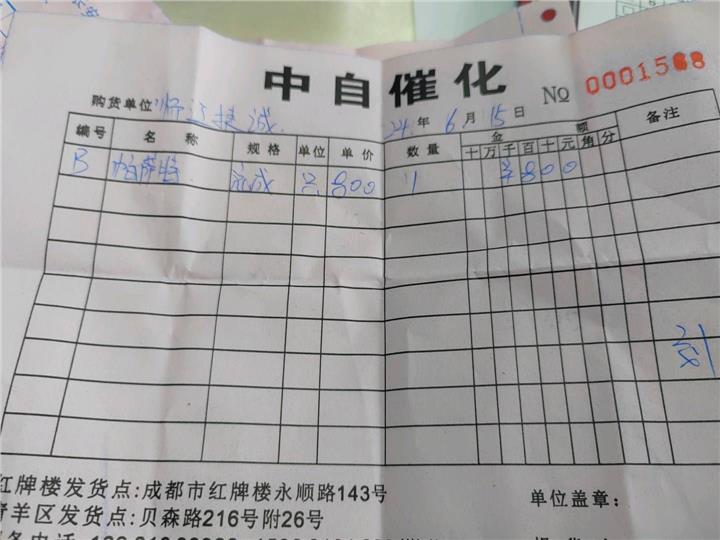 中自催化
No 0001568
购货单位 捷诚 24年6月15日
编号 名称 规格 单位 单价 数量 金额 备注
十万千百十元角分
B 帕萨特 总成 只 800 1 ¥800
红牌楼发货点:成都市红牌楼永顺路143号
单位盖章:
青羊区发货点:贝森路216号附26号